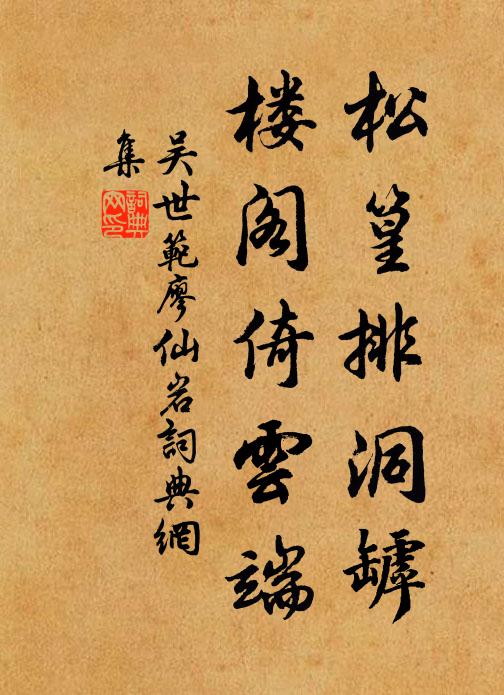 松篁排洞罅
楼阁倚雲端
吴世範廖仙岩詞典網
集
詞典
网印